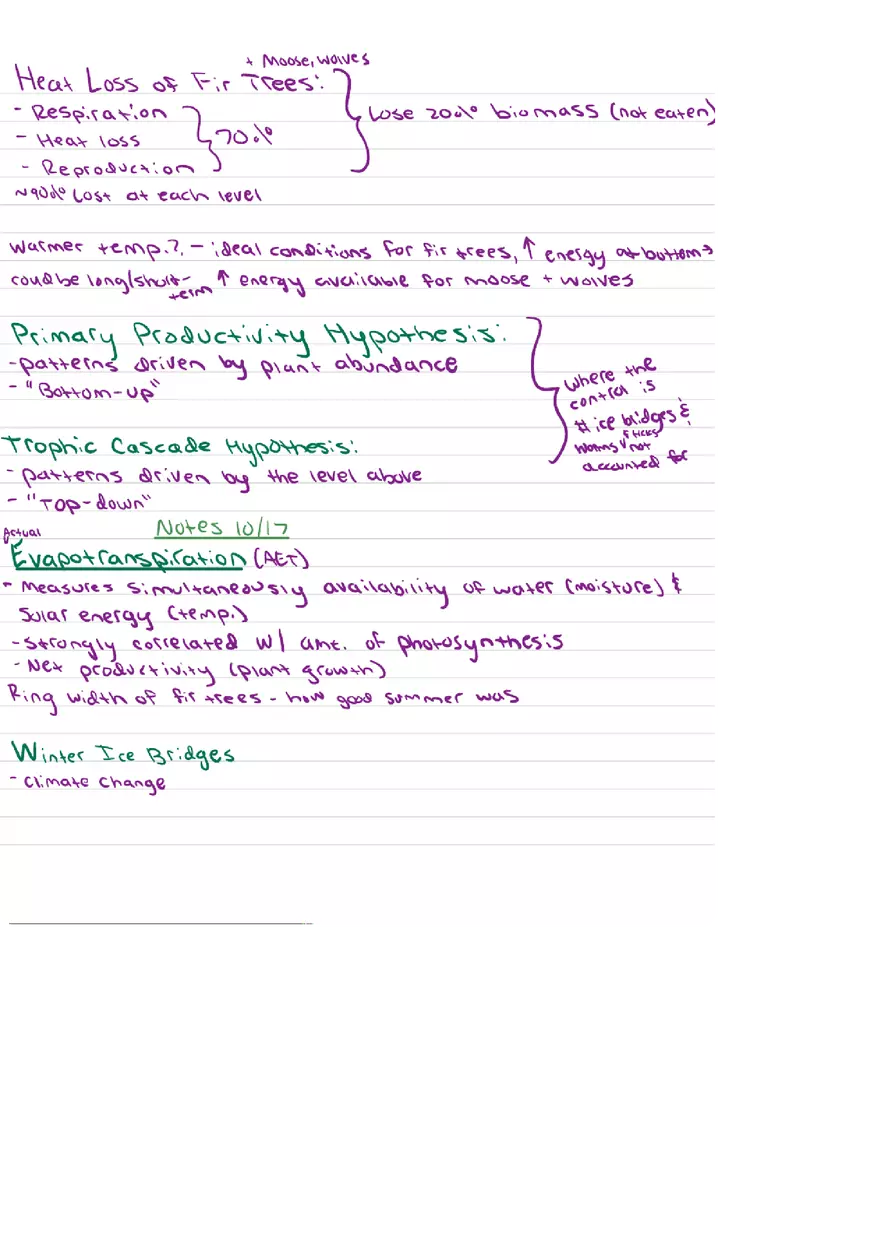 + Moose, wolves
Heat Loss of Fir Trees:
- Respiration
- Heat loss
- Reproduction
70%
Lose 20% biomass (not eaten)
~90% Lost at each level
Warmer temp.?, - ideal conditions for fir trees, ↑ energy at bottom →
could be long/short-term ↑ energy available for moose + wolves
Primary Productivity Hypothesis:
- patterns driven by plant abundance
- "Bottom-up"
where the
control is
# ice bridges &
worms & ticks not
accounted for
Trophic Cascade Hypothesis:
- patterns driven by the level above
- "Top-down"
Notes 10/17
Actual
Evapotranspiration (AET)
- Measures simultaneously availability of water (moisture) &
Solar energy (temp.)
- Strongly correlated w/ amt. of photosynthesis
- Net productivity (plant growth)
Ring width of fir trees - how good summer was
Winter Ice Bridges
- Climate Change